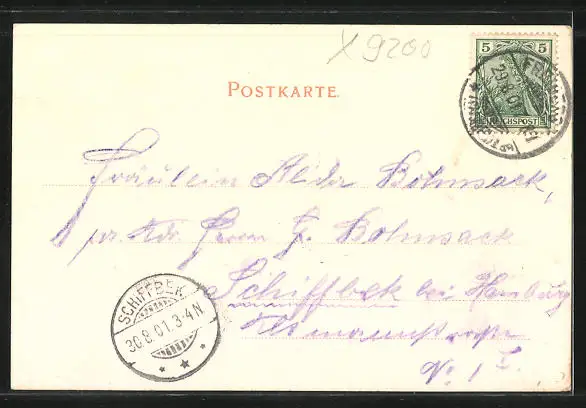 X 9200
5 5
REICHSPOST
29.8.01
POSTKARTE.
Fräulein Alda Bohmsack,
pr. Adr. Herrn G. Bohmsack
Schiffbek bei Hamburg
No. 1 I.
SCHIFFBEK
30.8.01.3-4N